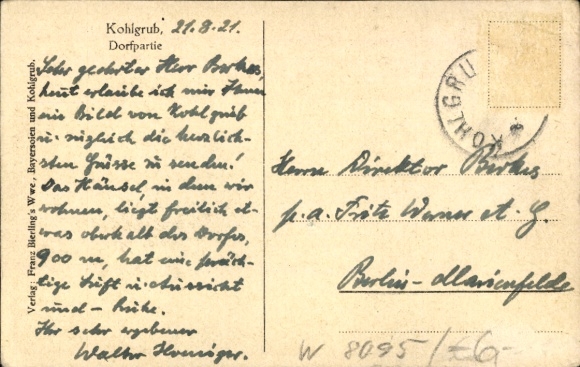 Kohlgrub, 21.8.21.
Dorfpartie
Sehr geehrter Herr Berkes,
heut erlaube ich mir Ihnen
ein Bild von Kohlgrub
u. zugleich die herzlich-
sten Grüsse zu senden!
Das Häusel, in dem wir
wohnen, liegt freilich et-
was oberhalb des Dorfes,
900 m, hat eine präch-
tige Luft u. Aussicht
und - Ruhe.
Ihr sehr ergebener
Walter
Verlag: Franz Bierling's Wwe., Bayersoien und Kohlgrub.
KOHLGRU
Herrn Direktor Berkes
p. a. Fritz Werner A. G.
Berlin-Marienfelde
W 8095